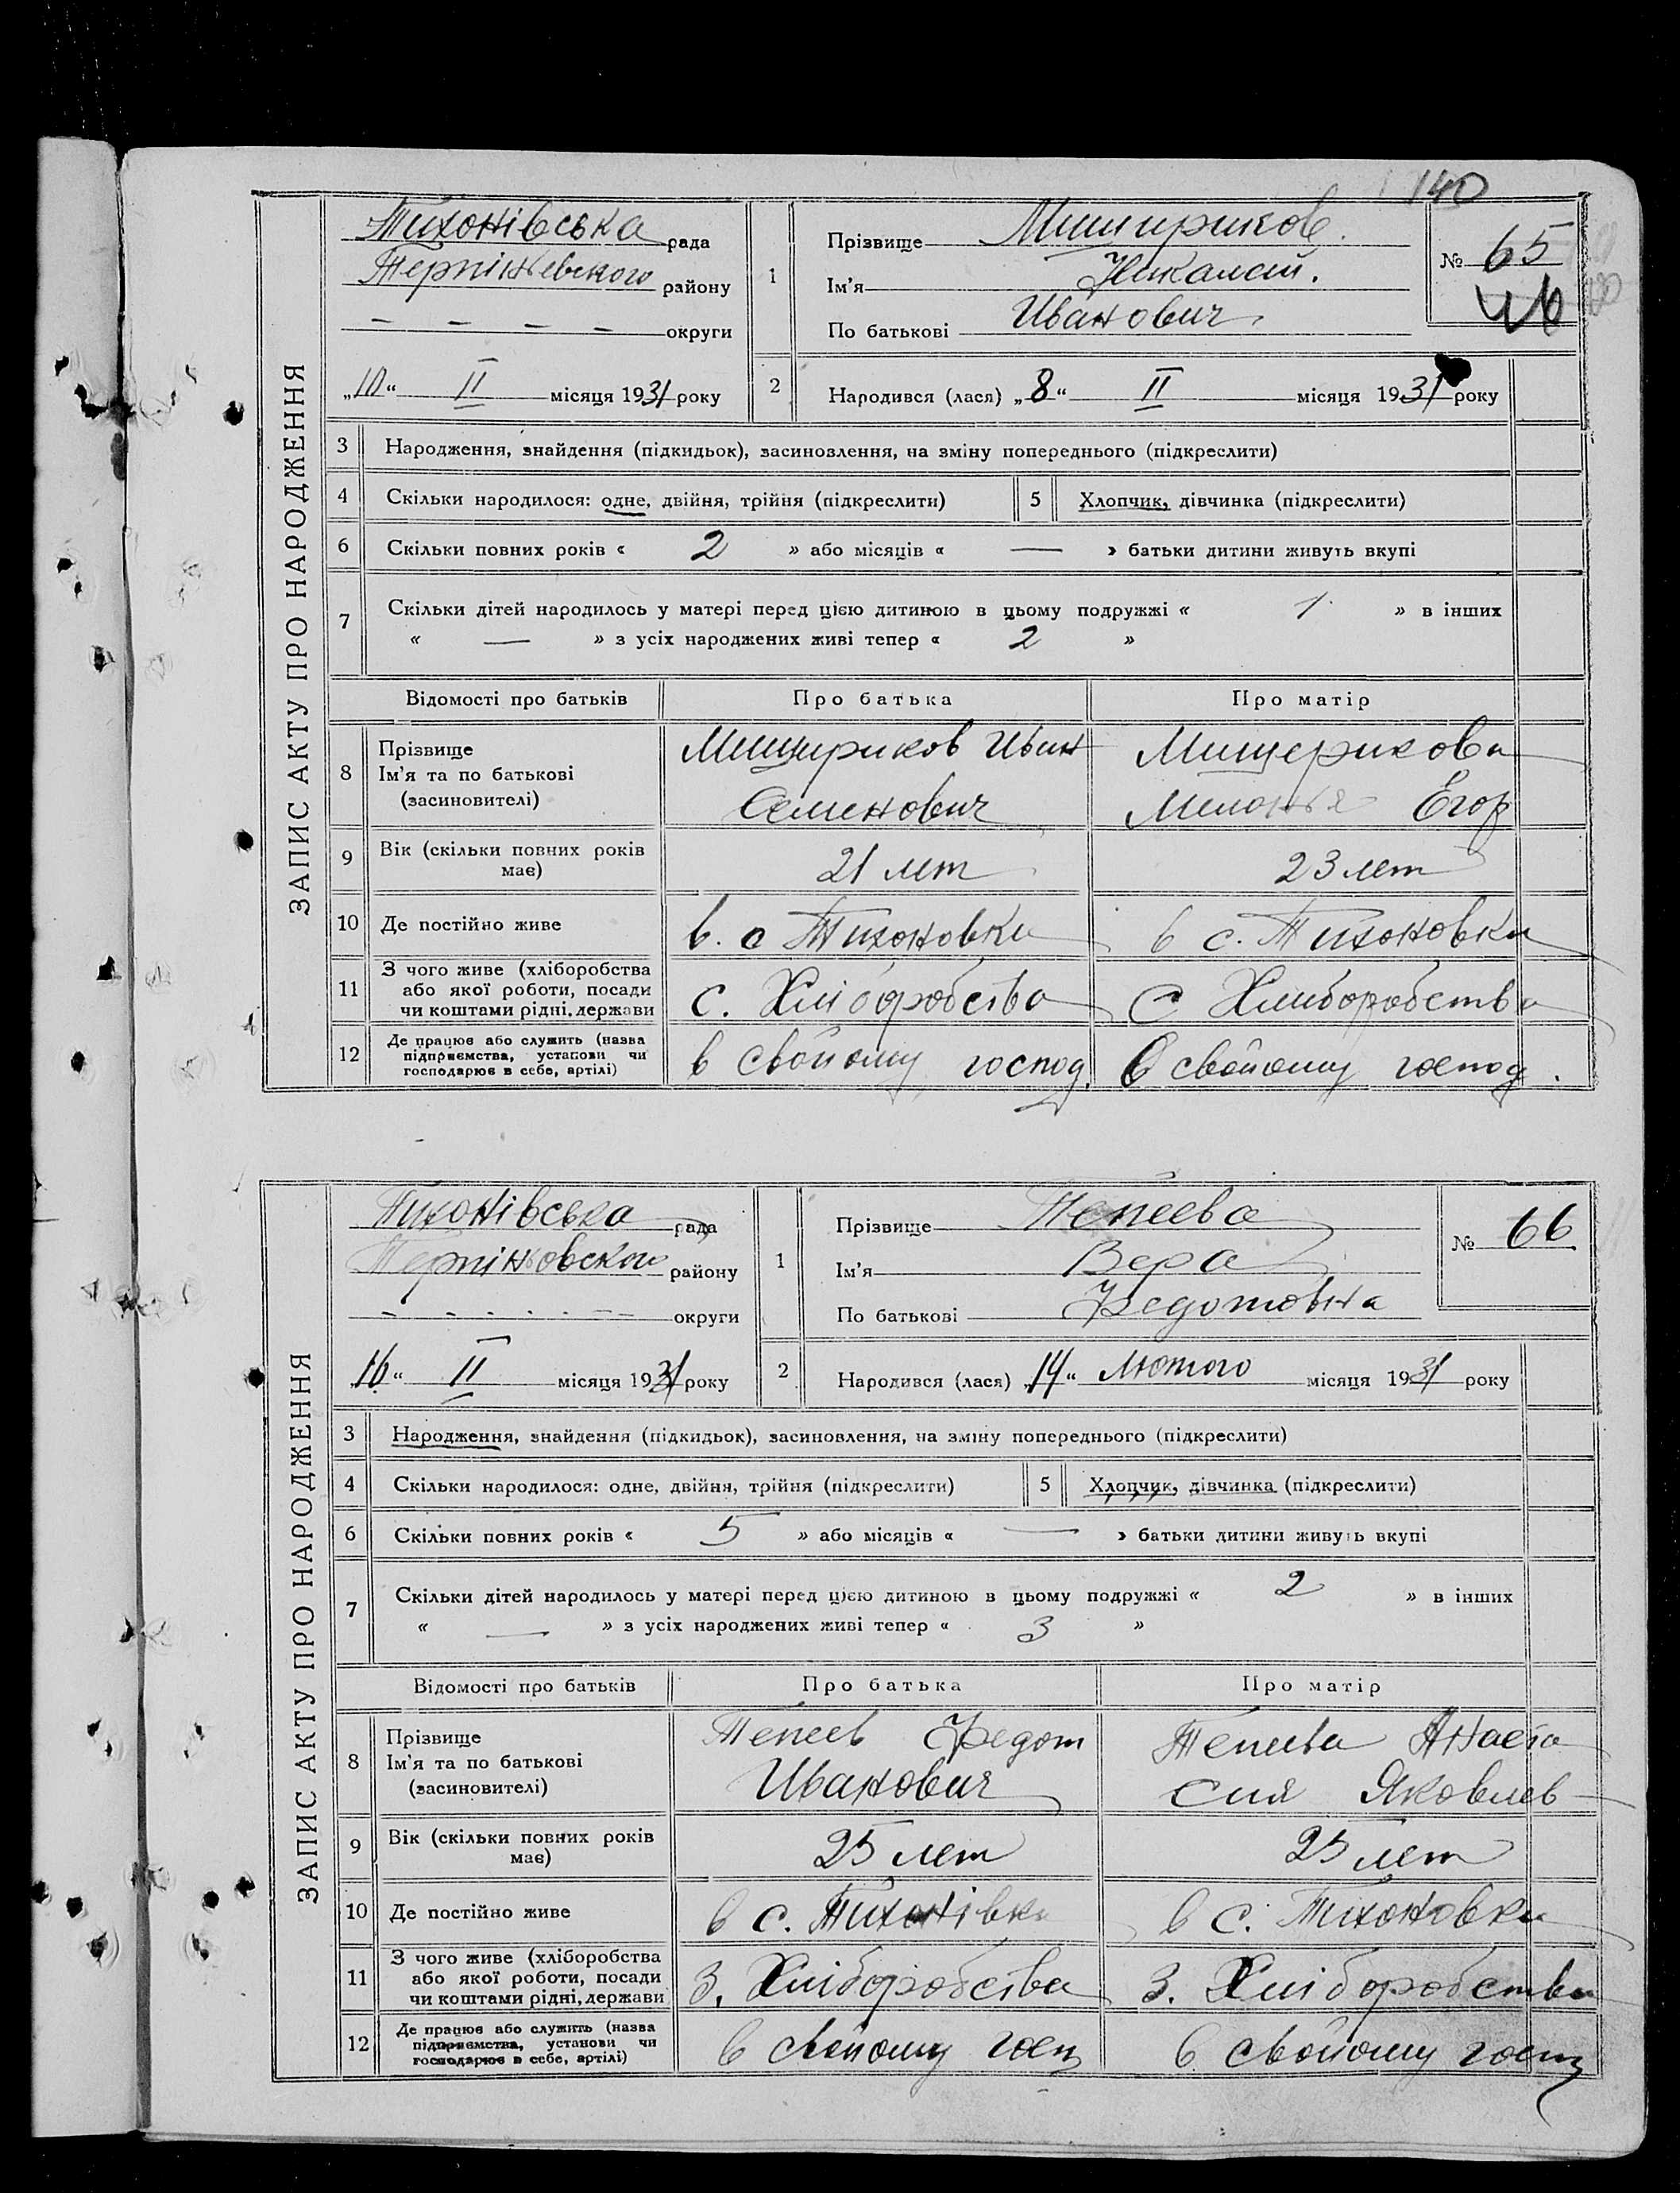 140
ЗАПИС АКТУ ПРО НАРОДЖЕННЯ
Тихонівська рада
Терпіньевского району
— — — — округи
„10“ II місяця 1931 року
1
Прізвище Мищириков.
Ім’я Николай.
По батькові Иванович
№ 65
2
Народився (лася) „8“ II місяця 1931 року
3 Народження, знайдення (підкидьок), засиновлення, на зміну попереднього (підкреслити)
4 Скільки народилося: одне, двійня, трійня (підкреслити) 5 Хлопчик, дівчинка (підкреслити)
6 Скільки повних років « 2 » або місяців « — » батьки дитини живуть вкупі
7 Скільки дітей народилось у матері перед цією дитиною в цьому подружжі « 1 » в інших
« — » з усіх народжених живі тепер « 2 »
Відомості про батьків Про батька Про матір
8 Прізвище
Ім’я та по батькові
(засиновителі)
Мищириков Иван
Семенович
Мищерикова
Меланья Егор
9 Вік (скільки повних років
має)
21 лет
23 лет
10 Де постійно живе
в. с Тихоновки
в с. Тихоновки
11 З чого живе (хліборобства
або якої роботи, посади
чи коштами рідні, держави
с. Хліборобства
с Хлиборобства
12 Де працює або служить (назва
підприємства, установи чи
господарює в себе, артілі)
в свойому господ.
в свойому господ.
ЗАПИС АКТУ ПРО НАРОДЖЕННЯ
Тихонівська рада
Терпіньовского району
округи
„16“ II місяця 1931 року
1
Прізвище Тепеева
Ім’я Вера
По батькові Федотовна
№ 66
2
Народився (лася) „14“ Лютого місяця 1931 року
3 Народження, знайдення (підкидьок), засиновлення, на зміну попереднього (підкреслити)
4 Скільки народилося: одне, двійня, трійня (підкреслити) 5 Хлопчик, дівчинка (підкреслити)
6 Скільки повних років « 5 » або місяців « — » батьки дитини живуть вкупі
7 Скільки дітей народилось у матері перед цією дитиною в цьому подружжі « 2 » в інших
« — » з усіх народжених живі тепер « 3 »
Відомості про батьків Про батька Про матір
8 Прізвище
Ім’я та по батькові
(засиновителі)
Тепеев Федот
Иванович
Тепеева Анаста
сия Яковлев
9 Вік (скільки повних років
має)
25 лет
25 лет
10 Де постійно живе
в с. Тихонівки
в с. Тихоновки
11 З чого живе (хліборобства
або якої роботи, посади
чи коштами рідні, держави
З. Хліборобства
З. Хліборобства
12 Де працює або служить (назва
підприємства, установи чи
господарює в себе, артілі)
в свойому госп
в свойому госп